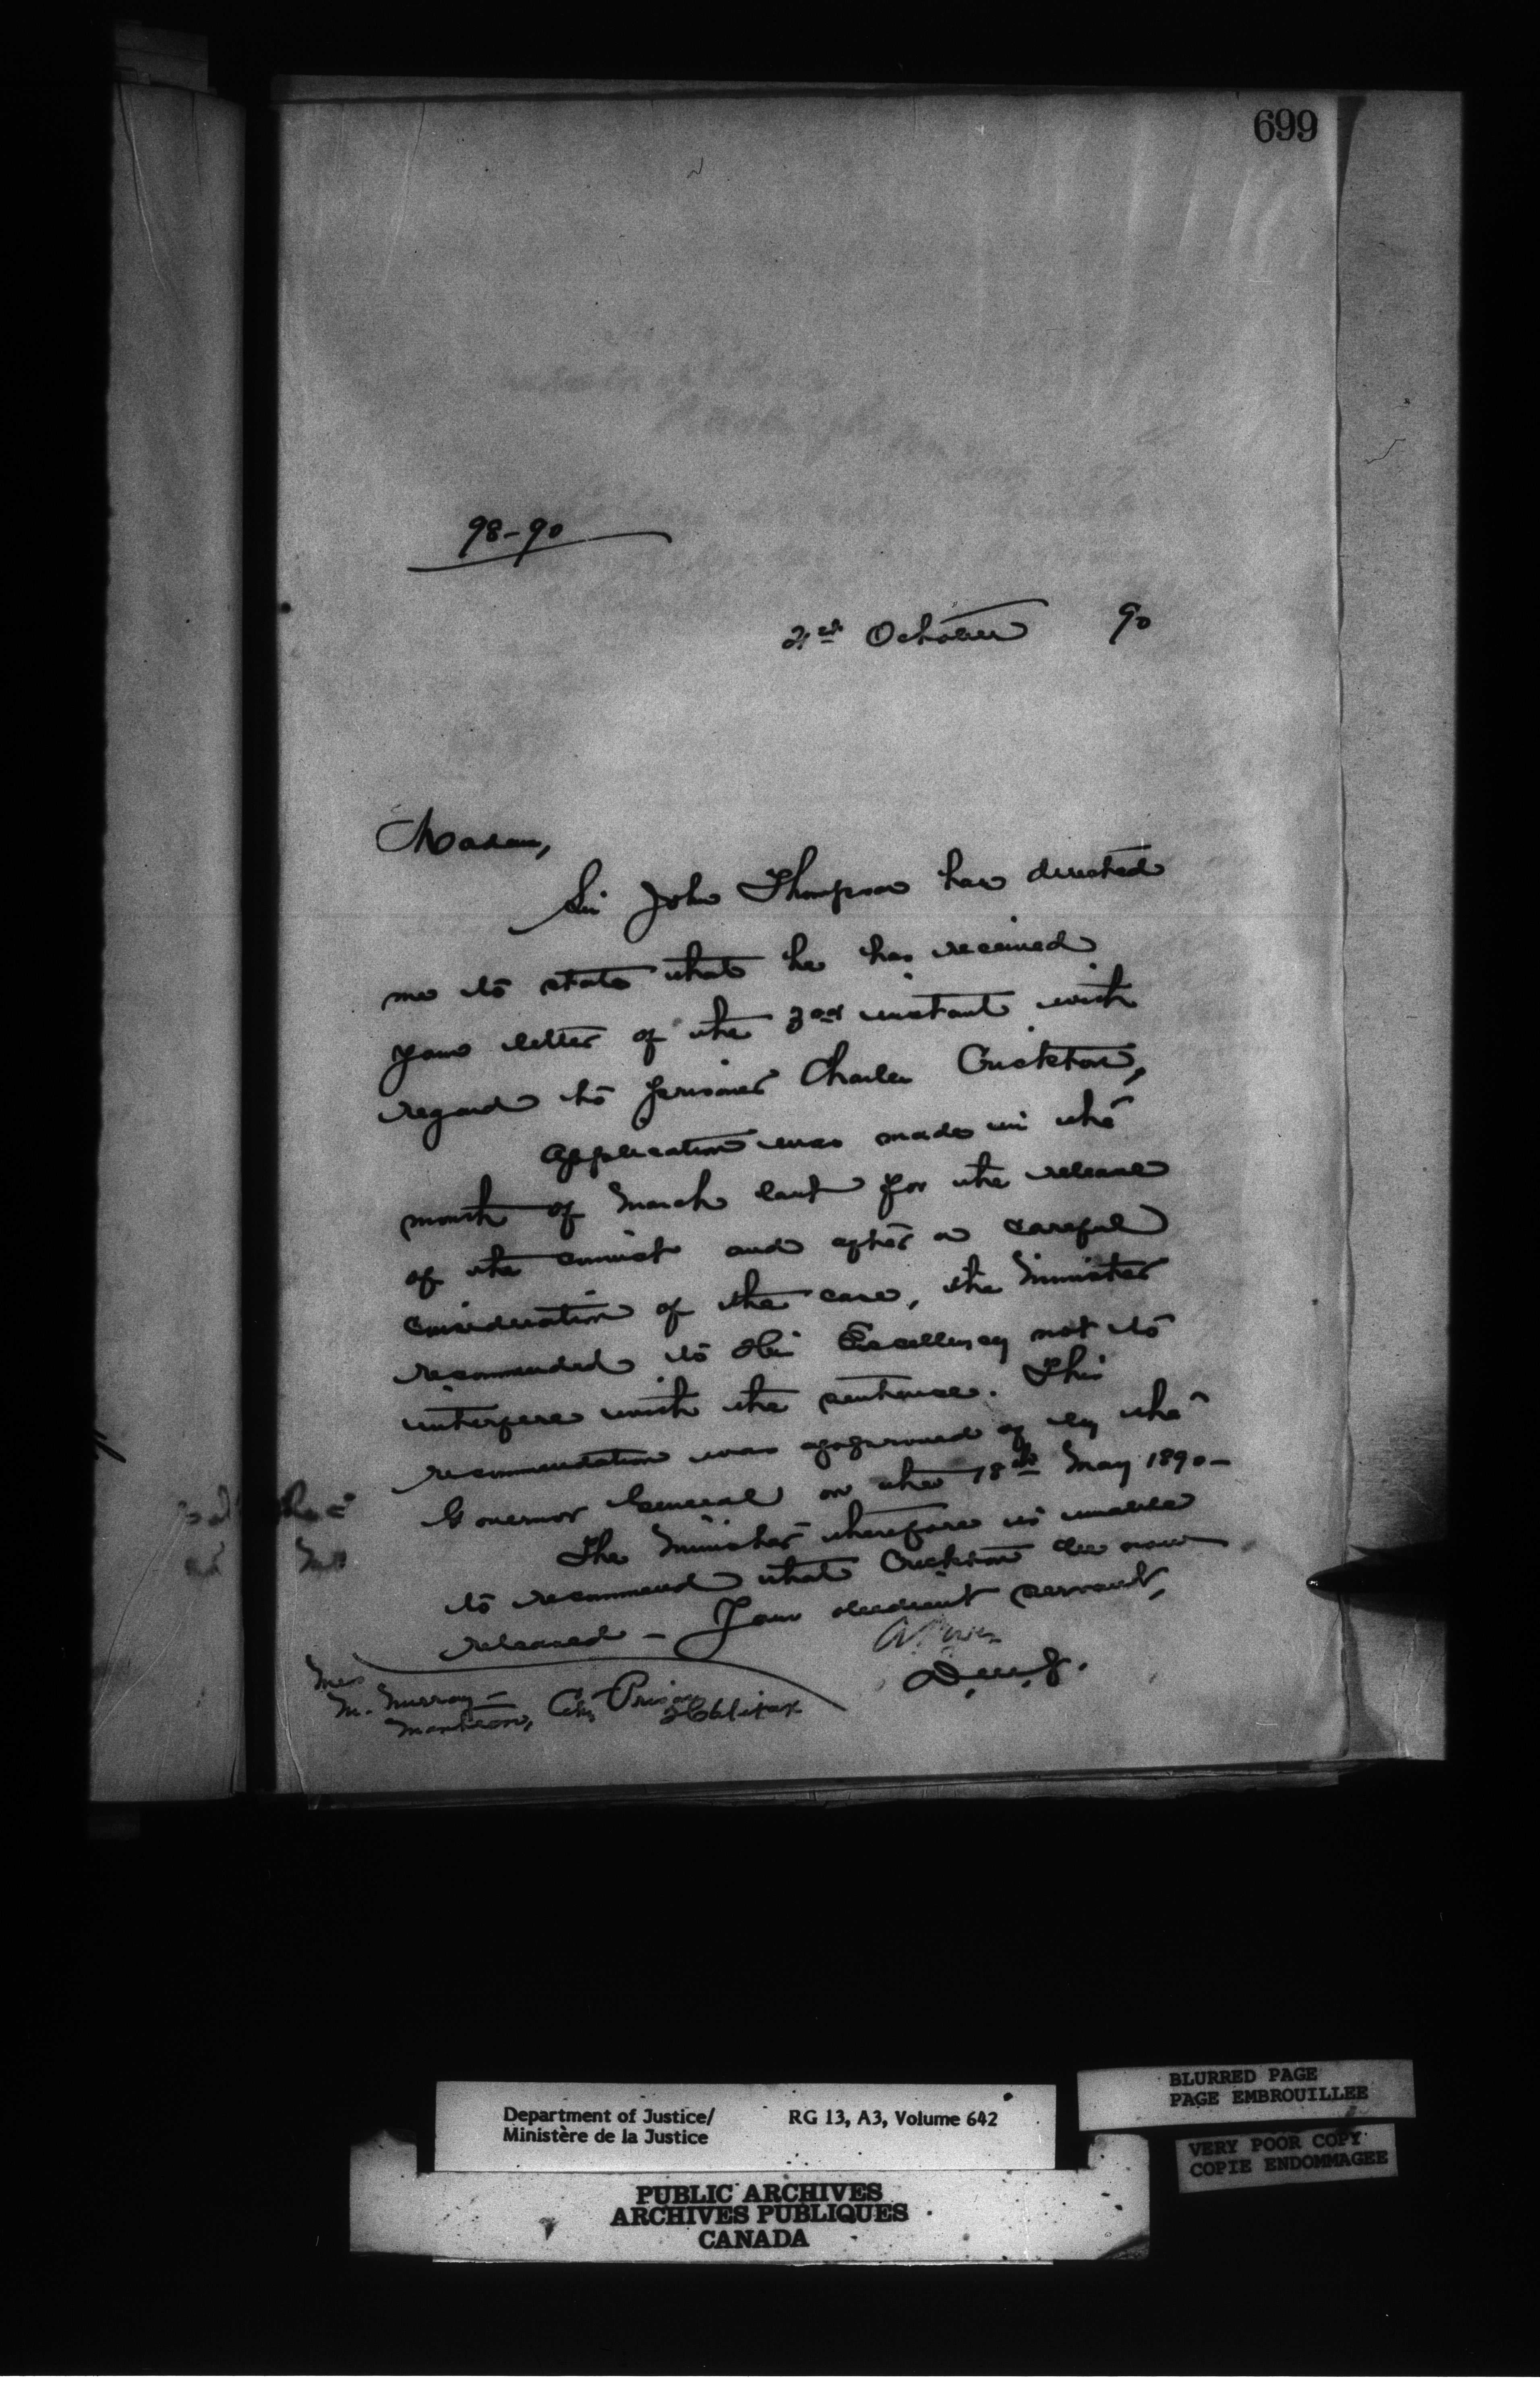 699
98-90
October 90
Madam,
Sir John Thompson has directed
me to state that he has received
your letter of the 3rd instant with
regard to prisoner Charles Crickton,
Application was made in the
month of March last for the release
of the convict and after a careful
consideration of the case, the Minister
recommended to His Excellency not to
interfere with the sentence. This
recommendation was approved of by the
Governor General on the 18th May 1890-
The Minister therefore is unable
to recommend that Crickton be now
released - Your obedient servant,
D.M.J.
Mrs
M. Murray -
Matron, City Prison
Halifax
Department of Justice/ RG 13, A3, Volume 642
Ministère de la Justice
BLURRED PAGE
PAGE EMBROUILLEE
VERY POOR COPY
COPIE ENDOMMAGEE
PUBLIC ARCHIVES
ARCHIVES PUBLIQUES
CANADA